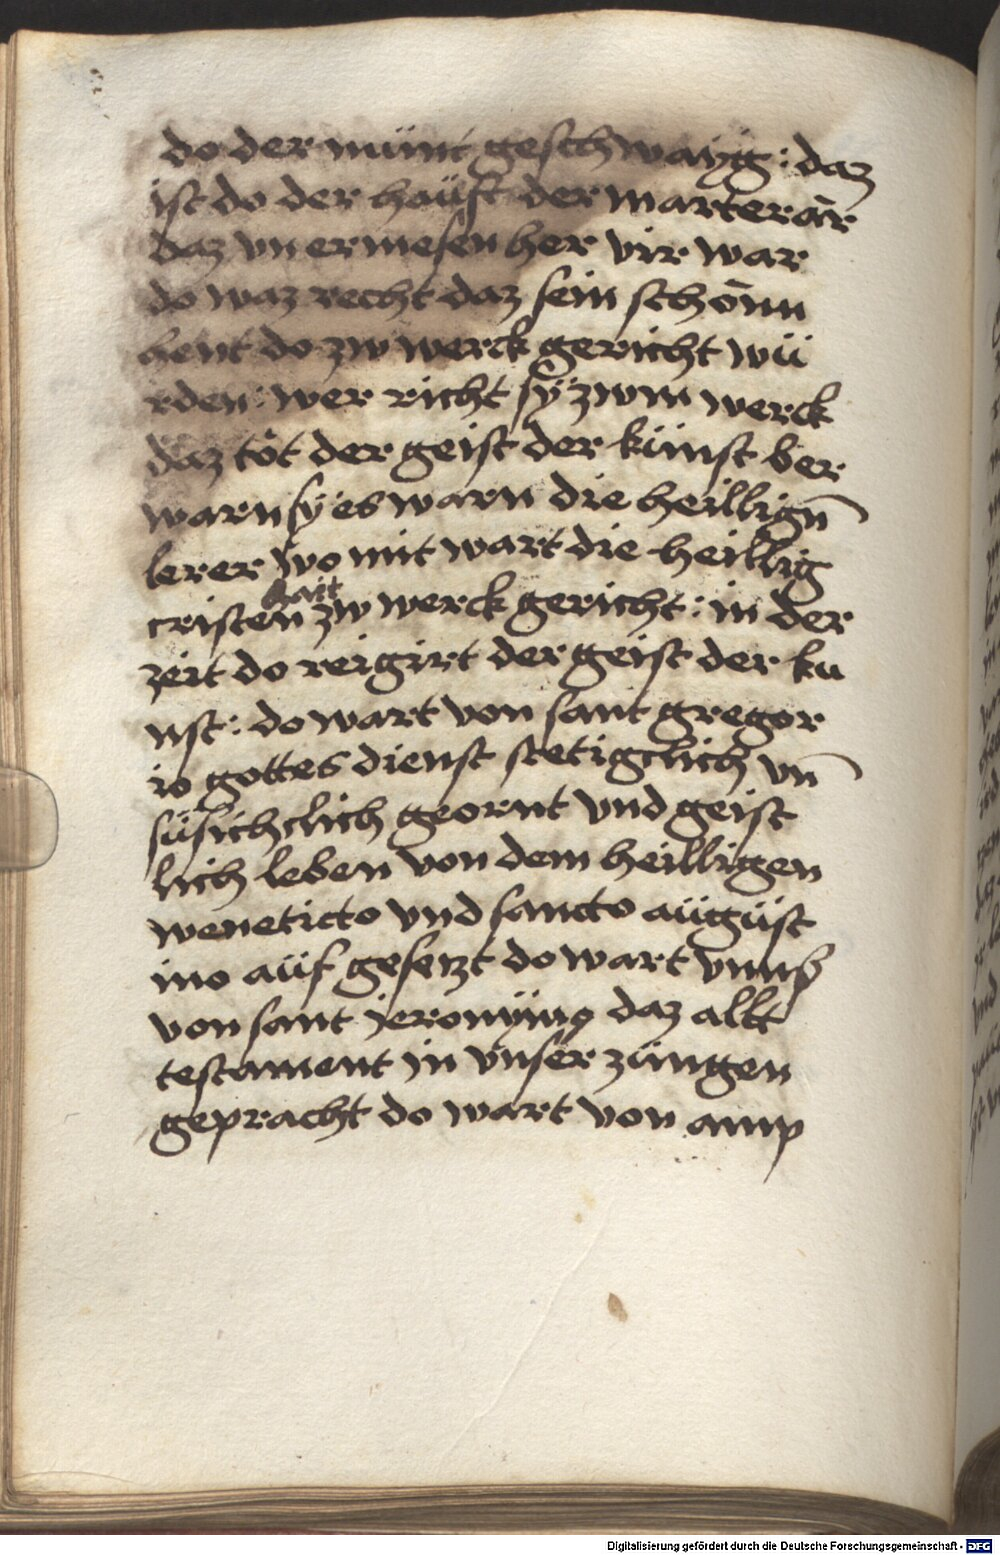 do der münt geschwaӱg : daz
ist do der haüft der marterar̄
daz vn ermesen her vir war
do waz recht daz sein schōnn
hent do zw werck gericht wü
rden : wer richt sӱ zwm werck
daz töt der geist der künst ber
warn sӱ es warn die heillign̄
lerer wo mit wart die heillig
cristenhait zw werck gericht : in der
zeit do reigirt der geist der ku
nst : do wart von sant gregor
io gottes dienst stetigclich vn̄
süsichclich geornt vnd geist
lich leben von dem heilligen
weneticto vnd sancto aügüst
ino aüf gesetzt do wart vnnß
von sant jeronӱmo daz allt
testament in vnser züngen
gepracht do wart von amp
Digitalisierung gefördert durch die Deutsche Forschungsgemeinschaft - DFG